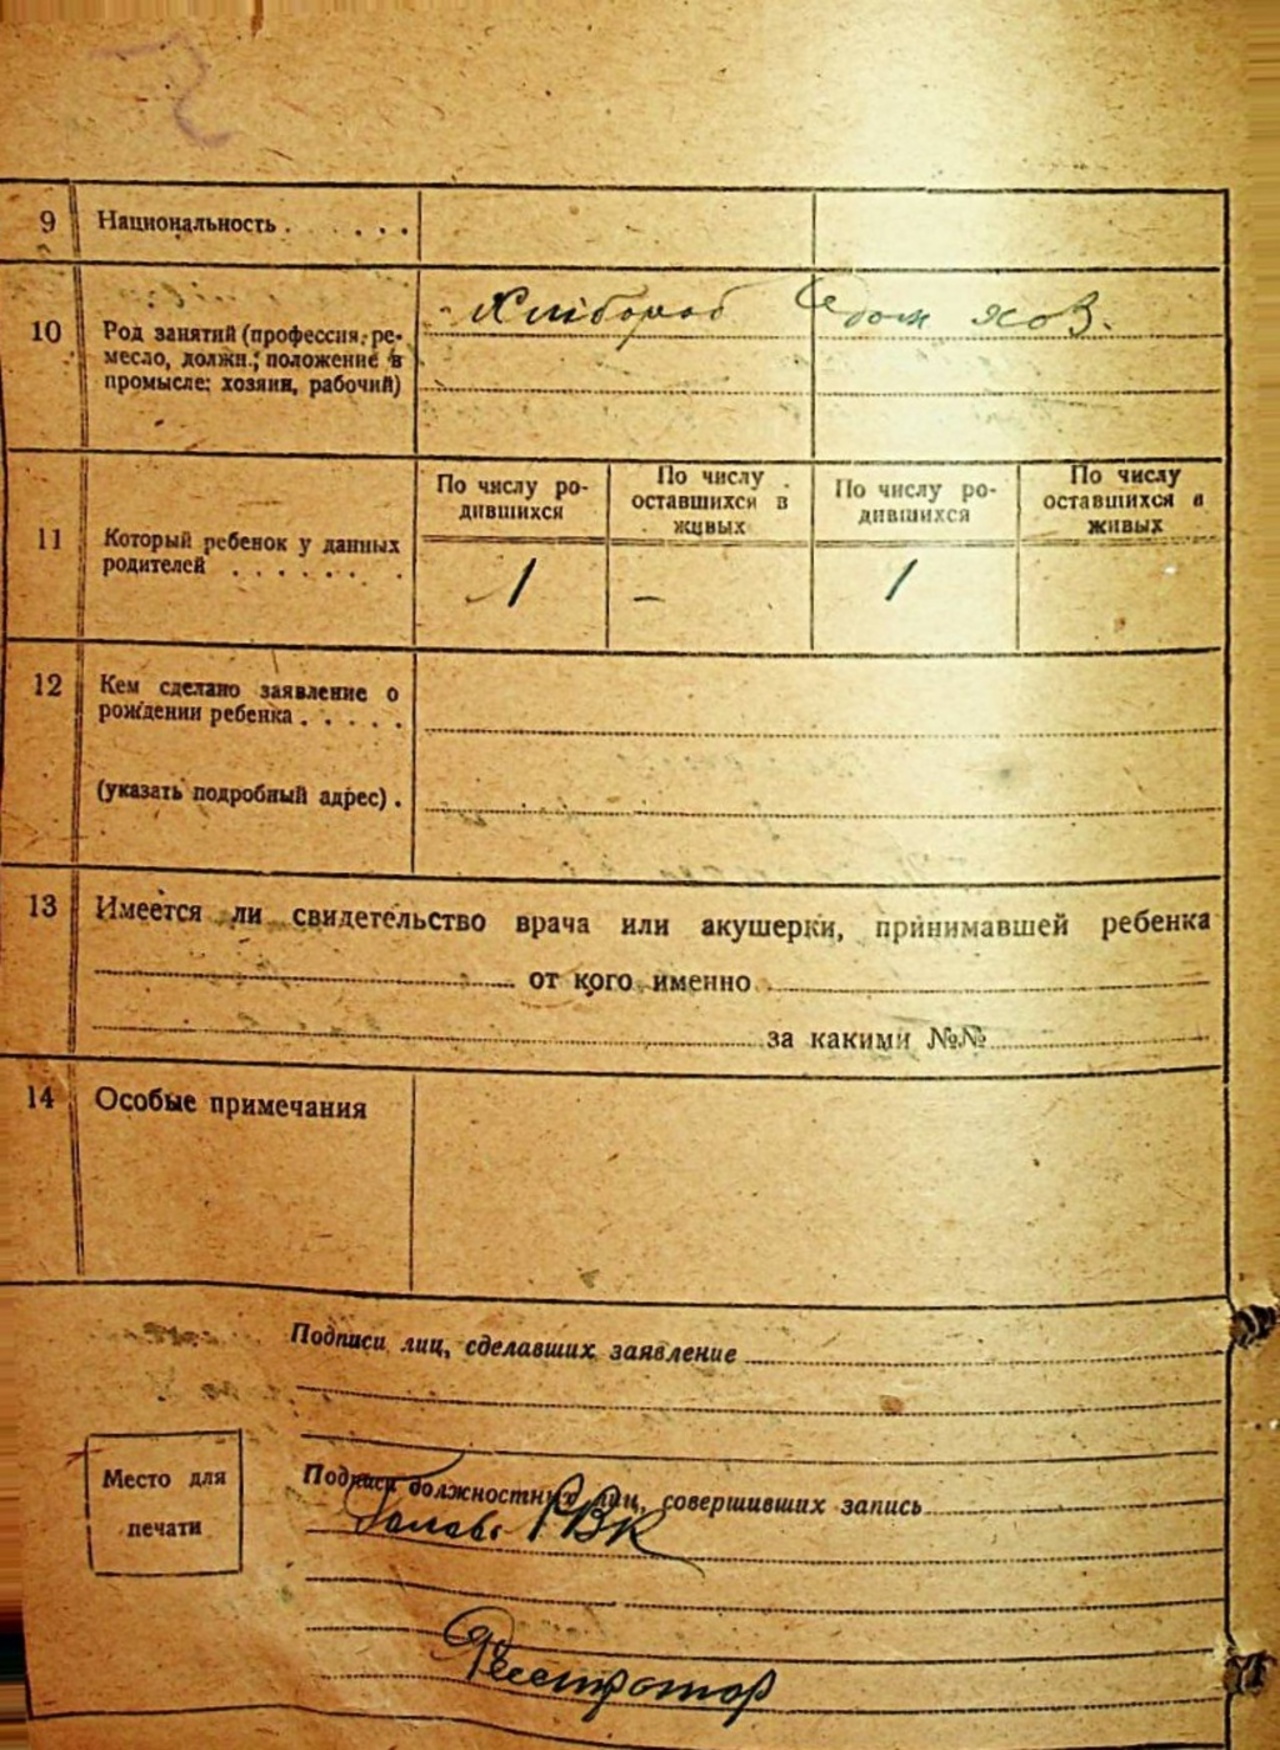 9 Национальность . . . . . .
10 Род занятий (профессия, ре-
месло, должн.; положение в
промысле: хозяин, рабочий)
Хлібороб
дом хоз.
11 Который ребенок у данных
родителей . . . . . . .
По числу ро-
дившихся
По числу
оставшихся в
живых
По числу ро-
дившихся
По числу
оставшихся в
живых
1 – 1
12 Кем сделано заявление о
рождении ребенка . . . . .
(указать подробный адрес) .
13 Имеется ли свидетельство врача или акушерки, принимавшей ребенка
от кого именно
за какими №№
14 Особые примечания
Подписи лиц, сделавших заявление
Место для
печати
Подписи должностных лиц, совершивших запись
Голова РВК
Реєстратор